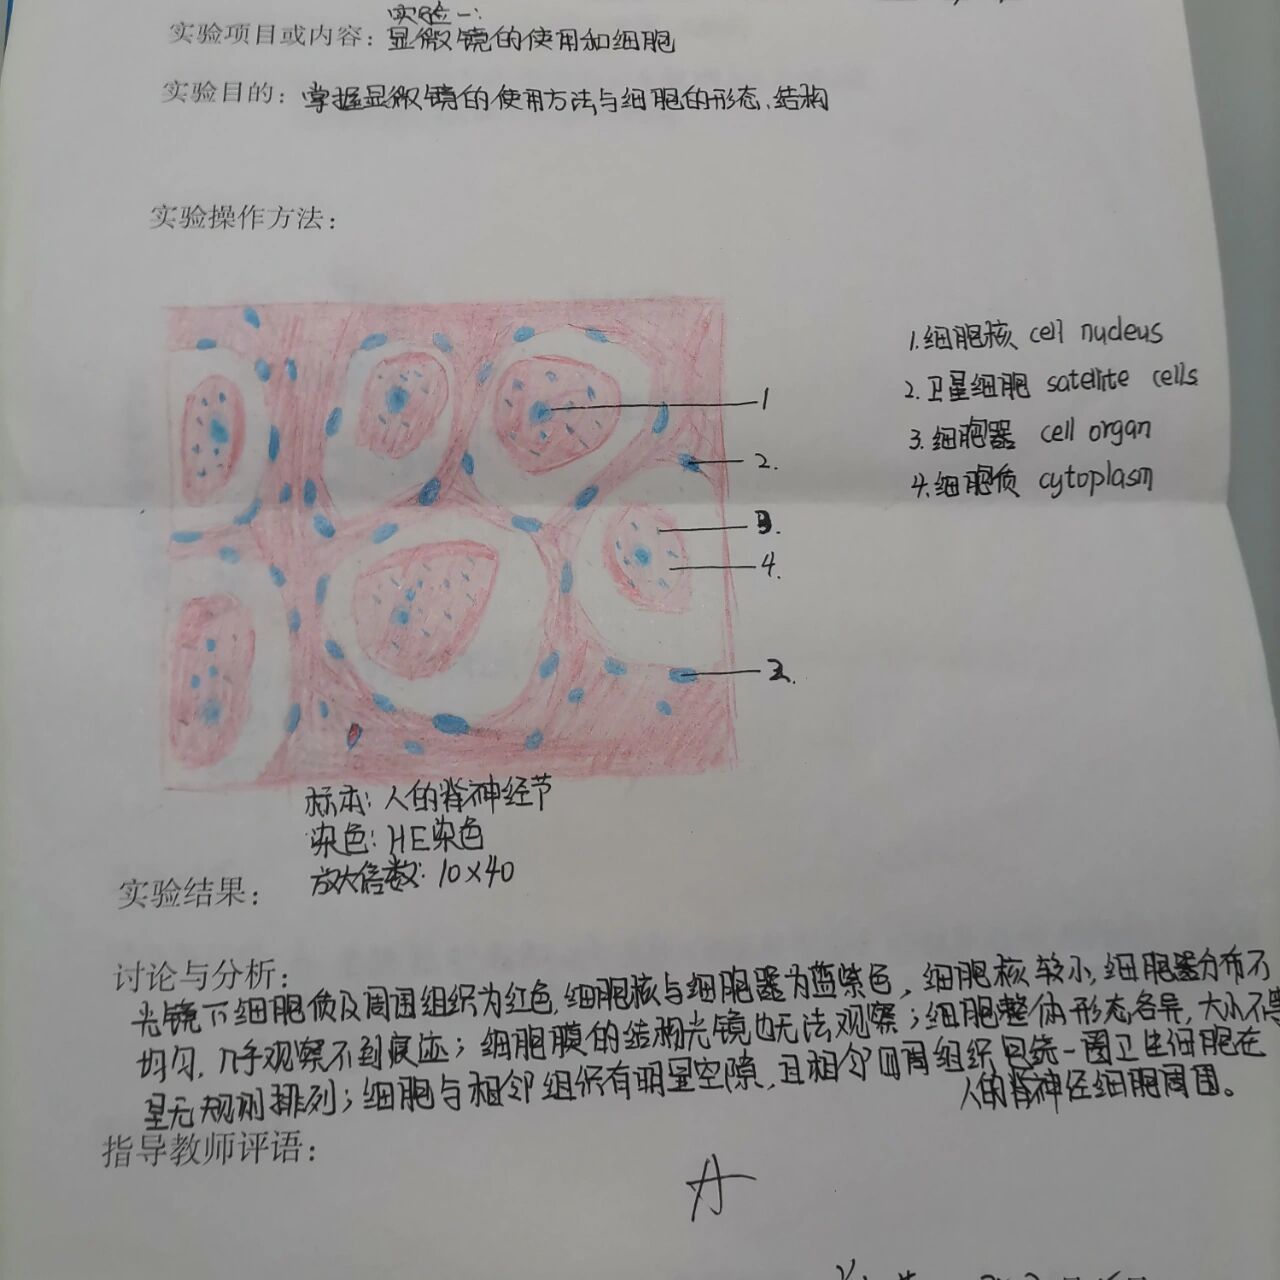 实验一:
实验项目或内容: 显微镜的使用和细胞
实验目的: 掌握显微镜的使用方法与细胞的形态、结构
实验操作方法:
1.细胞核 cell nucleus
2.卫星细胞 satellite cells
3.细胞器 cell organ
4.细胞质 cytoplasm
1
2.
3.
4.
2.
标本: 人的脊神经节
染色: HE染色
放大倍数: 10×40
实验结果:
讨论与分析:
光镜下细胞质及周围组织为红色,细胞核与细胞器为蓝紫色,细胞核较小,细胞器分布不
均匀,几乎观察不到痕迹;细胞膜的结构光镜也无法观察;细胞整体形态各异,大小不等
呈无规则排列;细胞与相邻组织有明显空隙,且相邻四周组织包绕一圈卫生细胞在
人的脊神经细胞周围。
指导教师评语:
A